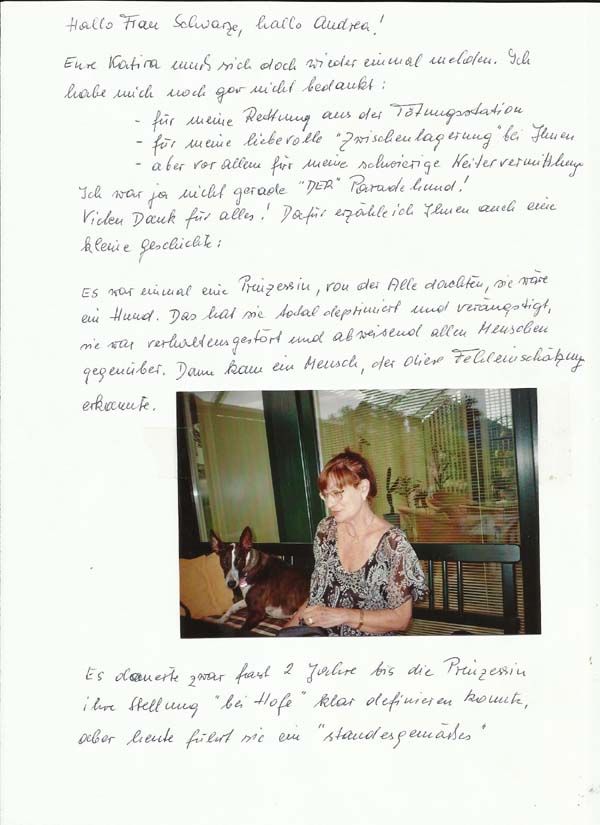 Hallo Frau Schwarze, hallo Andrea!
Eure Katira muß sich doch wieder einmal melden. Ich
habe mich noch gar nicht bedankt:
- für meine Rettung aus der Tötungsstation
- für meine liebevolle "Zwischenlagerung" bei Ihnen
- aber vor allem für meine schwierige Weitervermittlung
Ich war ja nicht gerade "DER" Paradehund!
Vielen Dank für alles! Dafür erzähle ich Ihnen auch eine
kleine Geschichte:
Es war einmal eine Prinzessin, von der Alle dachten, sie wäre
ein Hund. Das hat sie total deprimiert und verängstigt,
sie war verhaltensgestört und abweisend allen Menschen
gegenüber. Dann kam ein Mensch, der diese Fehleinschätzung
erkannte.
Es dauerte zwar fast 2 Jahre bis die Prinzessin
ihre Stellung "bei Hofe" klar definieren konnte,
aber heute führt sie ein "standesgemäßes"